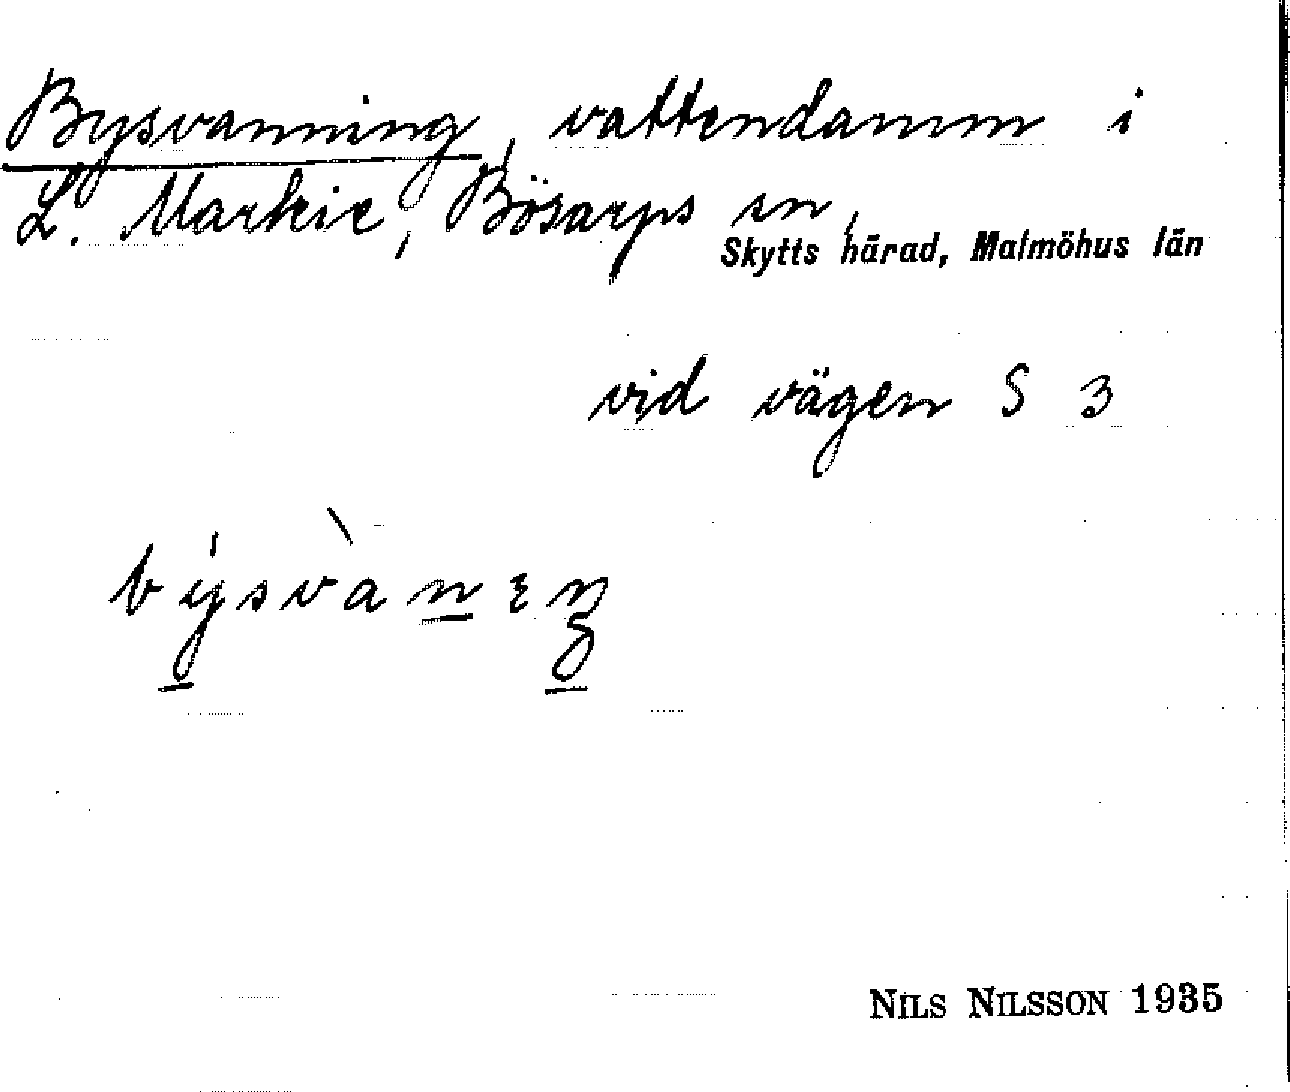 Bysvanning, vattendamm i
L. Markie, Bösarps sn,
Skytts härad, Malmöhus län
vid vägen S 3
Nils Nilsson 1935